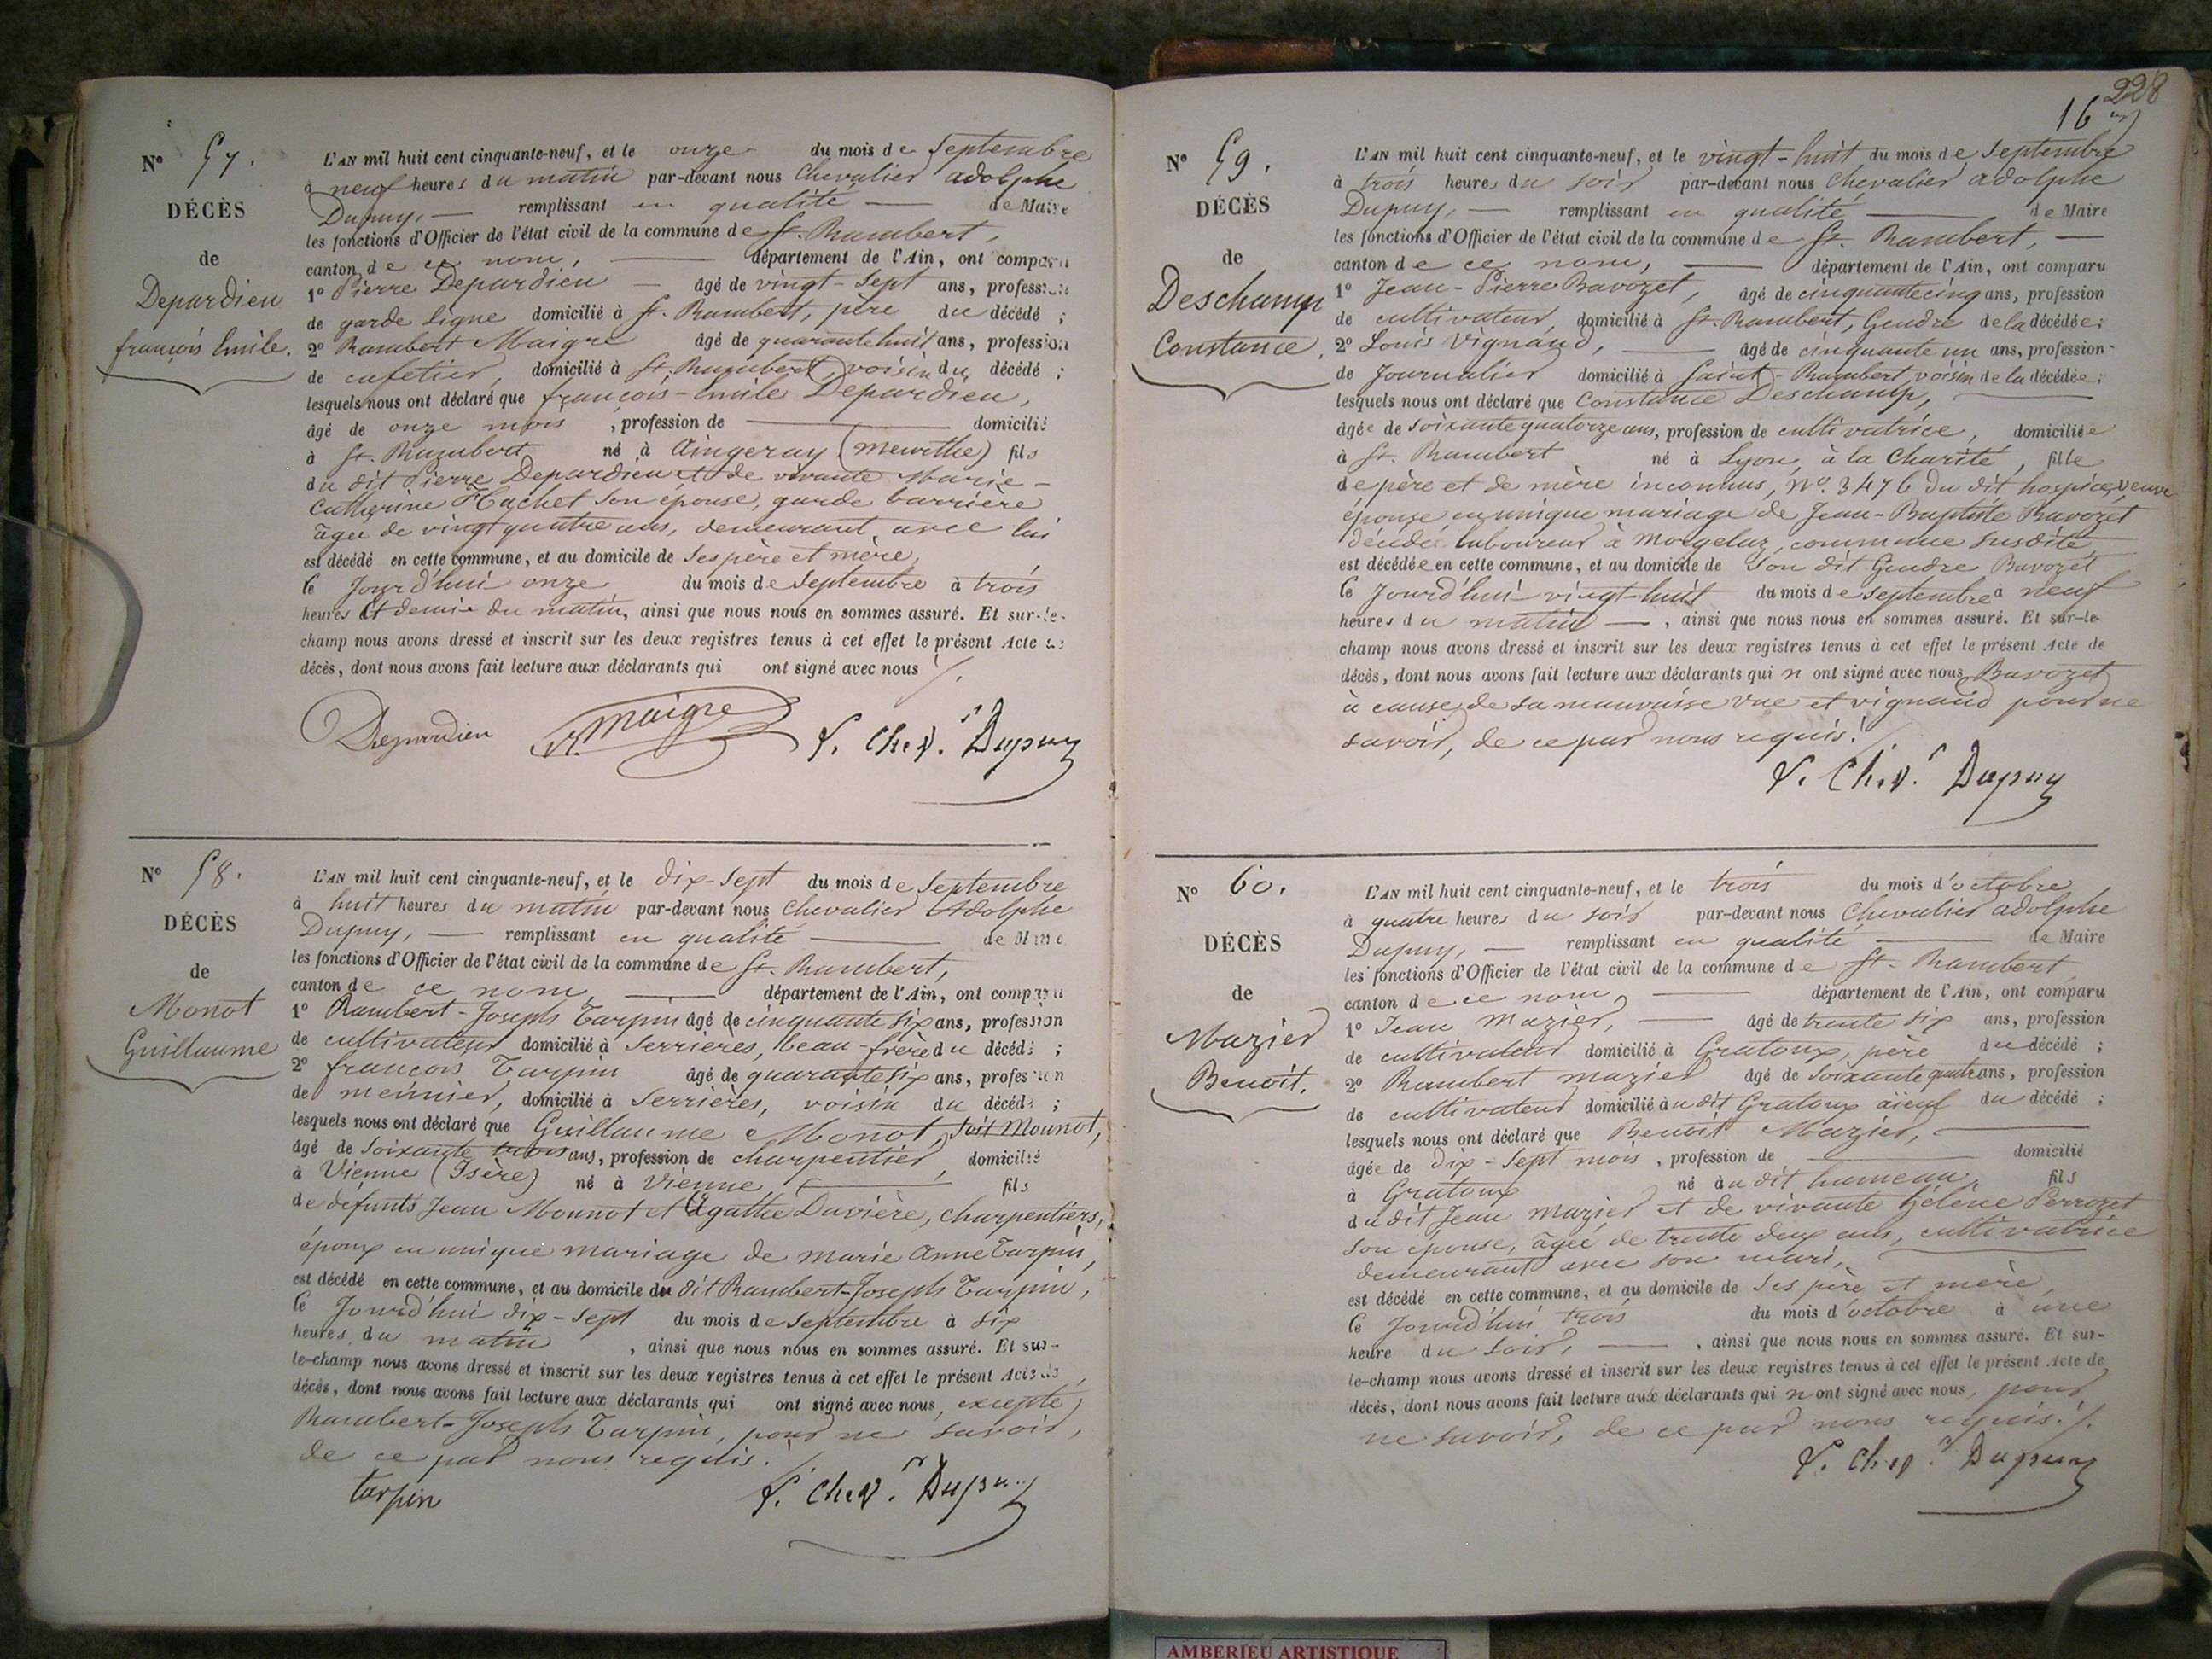 N° 57.
DÉCÈS
de
Depardieu
françois Emile.
L'AN mil huit cent cinquante-neuf, et le onze du mois de Septembre
à neuf heures du matin par-devant nous Chevalier adolphe
Dupuy, — remplissant en qualité — de Maire
les fonctions d'Officier de l'état civil de la commune de St. Rambert,
canton de ce nom, — département de l'Ain, ont comparu
1° Pierre Depardieu — âgé de vingt-sept ans, profession
de garde ligne domicilié à St. Rambert, père du décédé ;
2° Rambert Maigre âgé de quarante huit ans, profession
de cafetier, domicilié à St. Rambert, voisin du décédé ;
lesquels nous ont déclaré que françois-Emile Depardieu,
âgé de onze mois , profession de — domicilié
à St. Rambert né à Aingeray (Meurthe) fils
du dit Pierre Depardieu et de vivante Marie-
Catherine Hachet son épouse, garde barrière
âgée de vingt quatre ans, demeurant avec lui
est décédé en cette commune, et au domicile de ses père et mère,
le Jourd'hui onze du mois de Septembre à trois
heures et demie du matin, ainsi que nous nous en sommes assuré. Et sur-le-
champ nous avons dressé et inscrit sur les deux registres tenus à cet effet le présent Acte de
décès, dont nous avons fait lecture aux déclarants qui ont signé avec nous ./.
Depardieu R. Maigre A. Chev.r Dupuy
N° 58.
DÉCÈS
de
Monot
Guillaume
L'AN mil huit cent cinquante-neuf, et le dix-sept du mois de Septembre
à huit heures du matin par-devant nous Chevalier Adolphe
Dupuy, — remplissant en qualité — de Maire
les fonctions d'Officier de l'état civil de la commune de St. Rambert,
canton de ce nom, — département de l'Ain, ont comparu
1° Rambert-Joseph Tarpin âgé de cinquante six ans, profession
de cultivateur domicilié à Serrières, beau-frère du décédé ;
2° françois Tarpin âgé de quarante six ans, profession
de meûnier, domicilié à Serrières, voisin du décédé ;
lesquels nous ont déclaré que Guillaume Monot, soit Mounot,
âgé de soixante trois ans, profession de charpentier, domicilié
à Vienne (Isère) né à Vienne, — fils
de défunts Jean Mounot et Agathe Davière, charpentiers,
époux en unique mariage de Marie Anne Tarpin,
est décédé en cette commune, et au domicile du dit Rambert-Joseph Tarpin,
le Jourd'hui dix-sept du mois de Septembre à six
heures du matin , ainsi que nous nous en sommes assuré. Et sur-
le-champ nous avons dressé et inscrit sur les deux registres tenus à cet effet le présent Acte de
décès, dont nous avons fait lecture aux déclarants qui ont signé avec nous, excepté
Rambert-Joseph Tarpin, pour ne savoir,
de ce par nous requis. ./.
tarpin A. Chev.r Dupuy
228
16
N° 59.
DÉCÈS
de
Deschamp
Constance,
L'AN mil huit cent cinquante-neuf, et le vingt-huit du mois de Septembre
à trois heures du soir par-devant nous Chevalier adolphe
Dupuy, — remplissant en qualité — de Maire
les fonctions d'Officier de l'état civil de la commune de St. Rambert, —
canton de ce nom, — département de l'Ain, ont comparu
1° Jean-Pierre Bavozet, âgé de cinquante cinq ans, profession
de cultivateur, domicilié à St. Rambert, Gendre de la décédée ;
2° Louis Vignand, — âgé de cinquante un ans, profession
de Journalier domicilié à Saint-Rambert, voisin de la décédée ;
lesquels nous ont déclaré que Constance Deschamp, —
âgée de soixante quatorze ans, profession de cultivatrice, domiciliée
à St. Rambert né à Lyon, à la Charité, fille
de père et de mère inconnus, N°. 3476 du dit hospice, veuve
épouse en unique mariage de Jean-Baptiste Bavozet
décédé laboureur à Morgelaz, commune susdite,
est décédée en cette commune, et au domicile de son dit Gendre Bavozet
le Jourd'hui vingt-huit du mois de Septembre à neuf
heures du matin — , ainsi que nous nous en sommes assuré. Et sur-le-
champ nous avons dressé et inscrit sur les deux registres tenus à cet effet le présent Acte de
décès, dont nous avons fait lecture aux déclarants qui n'ont signé avec nous, Bavozet
à cause de sa mauvaise vue et vignand pour ne
savoir, de ce par nous requis. ./.
A. Chev.r Dupuy
N° 60.
DÉCÈS
de
Mazier
Benoit.
L'AN mil huit cent cinquante-neuf, et le trois du mois d'octobre
à quatre heures du soir par-devant nous Chevalier adolphe
Dupuy, — remplissant en qualité — de Maire
les fonctions d'Officier de l'état civil de la commune de St. Rambert
canton de ce nom, — département de l'Ain, ont comparu
1° Jean Mazier, — âgé de trente six ans, profession
de cultivateur domicilié à Gratoux, père du décédé ;
2° Rambert mazier âgé de soixante quatre ans, profession
de cultivateur domicilié au dit Gratoux aïeul du décédé ;
lesquels nous ont déclaré que Benoit Mazier, —
âgée de dix-sept mois , profession de — domicilié
à Gratoux né au dit hameau, fils
du dit Jean Mazier et de vivante hélène Perrozet
son épouse, âgée de trente deux ans, cultivatrice
demeurant avec son mari, —
est décédé en cette commune, et au domicile de ses père et mère
le Jourd'hui trois du mois d'octobre à une
heure du soir, — , ainsi que nous nous en sommes assuré. Et sur-
le-champ nous avons dressé et inscrit sur les deux registres tenus à cet effet le présent Acte de
décès, dont nous avons fait lecture aux déclarants qui n'ont signé avec nous, pour
ne savoir, de ce par nous requis. ./.
A. Chev.r Dupuy
AMBERIEU ARTISTIQUE